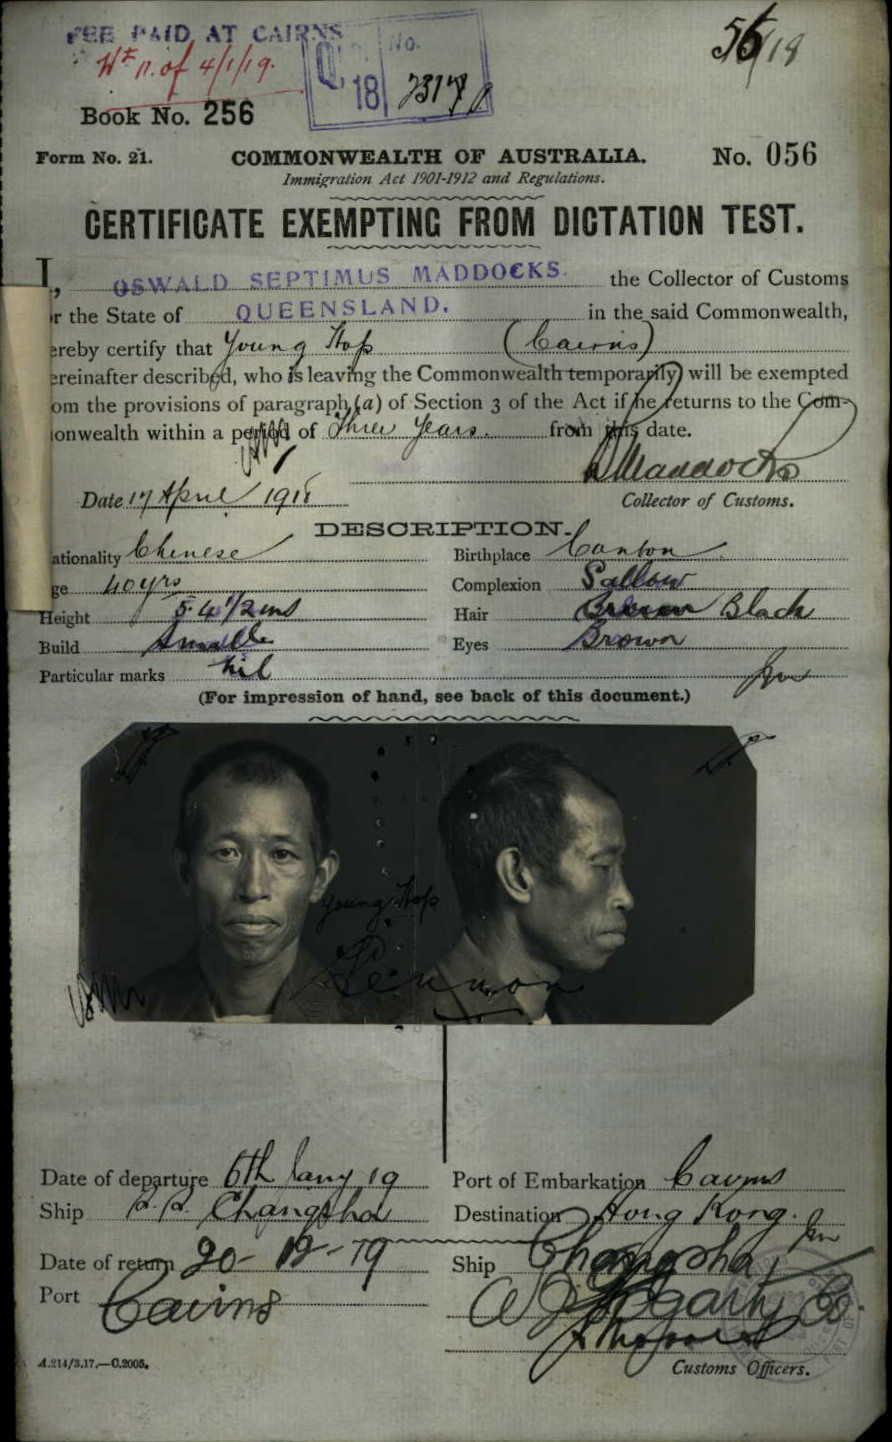 FEE PAID AT CAIRNS
of 4/1/19.
Q. 18 No.
56/18
Book No. 256
Form No. 21. COMMONWEALTH OF AUSTRALIA. No. 056
Immigration Act 1901-1912 and Regulations.
CERTIFICATE EXEMPTING FROM DICTATION TEST.
I, OSWALD SEPTIMUS MADDOCKS the Collector of Customs
r the State of QUEENSLAND. in the said Commonwealth,
ereby certify that Young Hop (Cairns)
ereinafter described, who is leaving the Commonwealth temporarily will be exempted
om the provisions of paragraph (a) of Section 3 of the Act if he returns to the Com-
onwealth within a period of Three Years. from this date.
Maddocks
Date 17 April 1918 Collector of Customs.
DESCRIPTION.
ationality Chinese Birthplace Canton
ge 40 yrs Complexion Sallow
Height 5. 4 1/2 ins Hair Brown Black
Build Small Eyes Brown
Particular marks nil
(For impression of hand, see back of this document.)
Young Hop
Date of departure 6th Jany 19 Port of Embarkation Cairns
Ship S.S. Changsha Destination Hong Kong.
Date of return 20-12-19 Ship Changsha
Port Cairns
Customs Officers.
A.214/3.17.—C.2005.